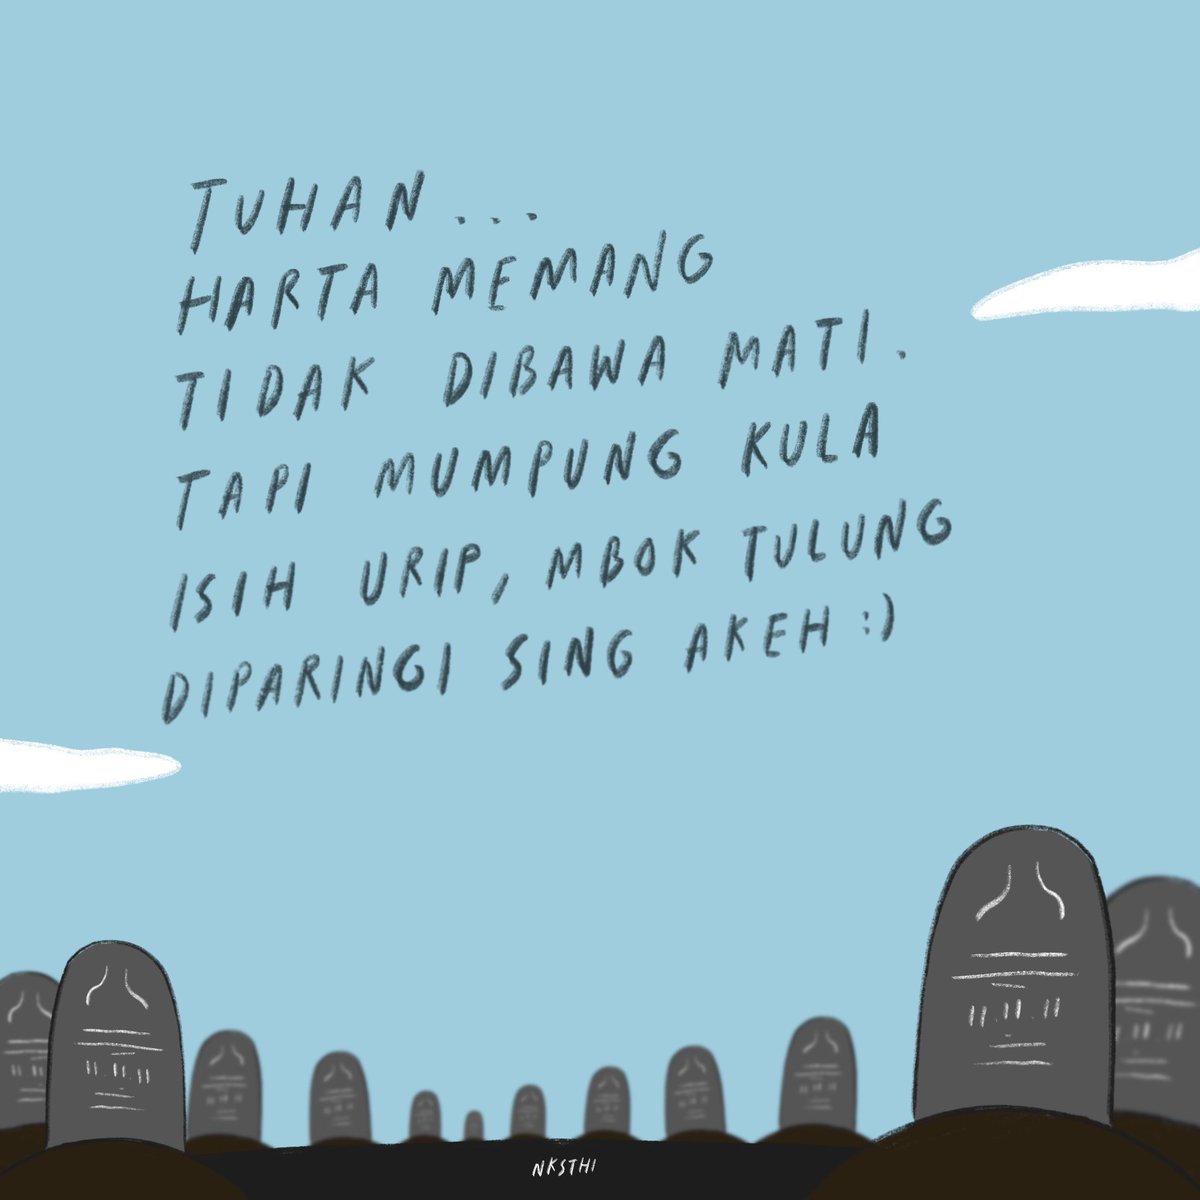 TUHAN...
HARTA MEMANG
TIDAK DIBAWA MATI.
TAPI MUMPUNG KULA
ISIH URIP, MBOK TULUNG
DIPARINGI SING AKEH :)
NKSTHI